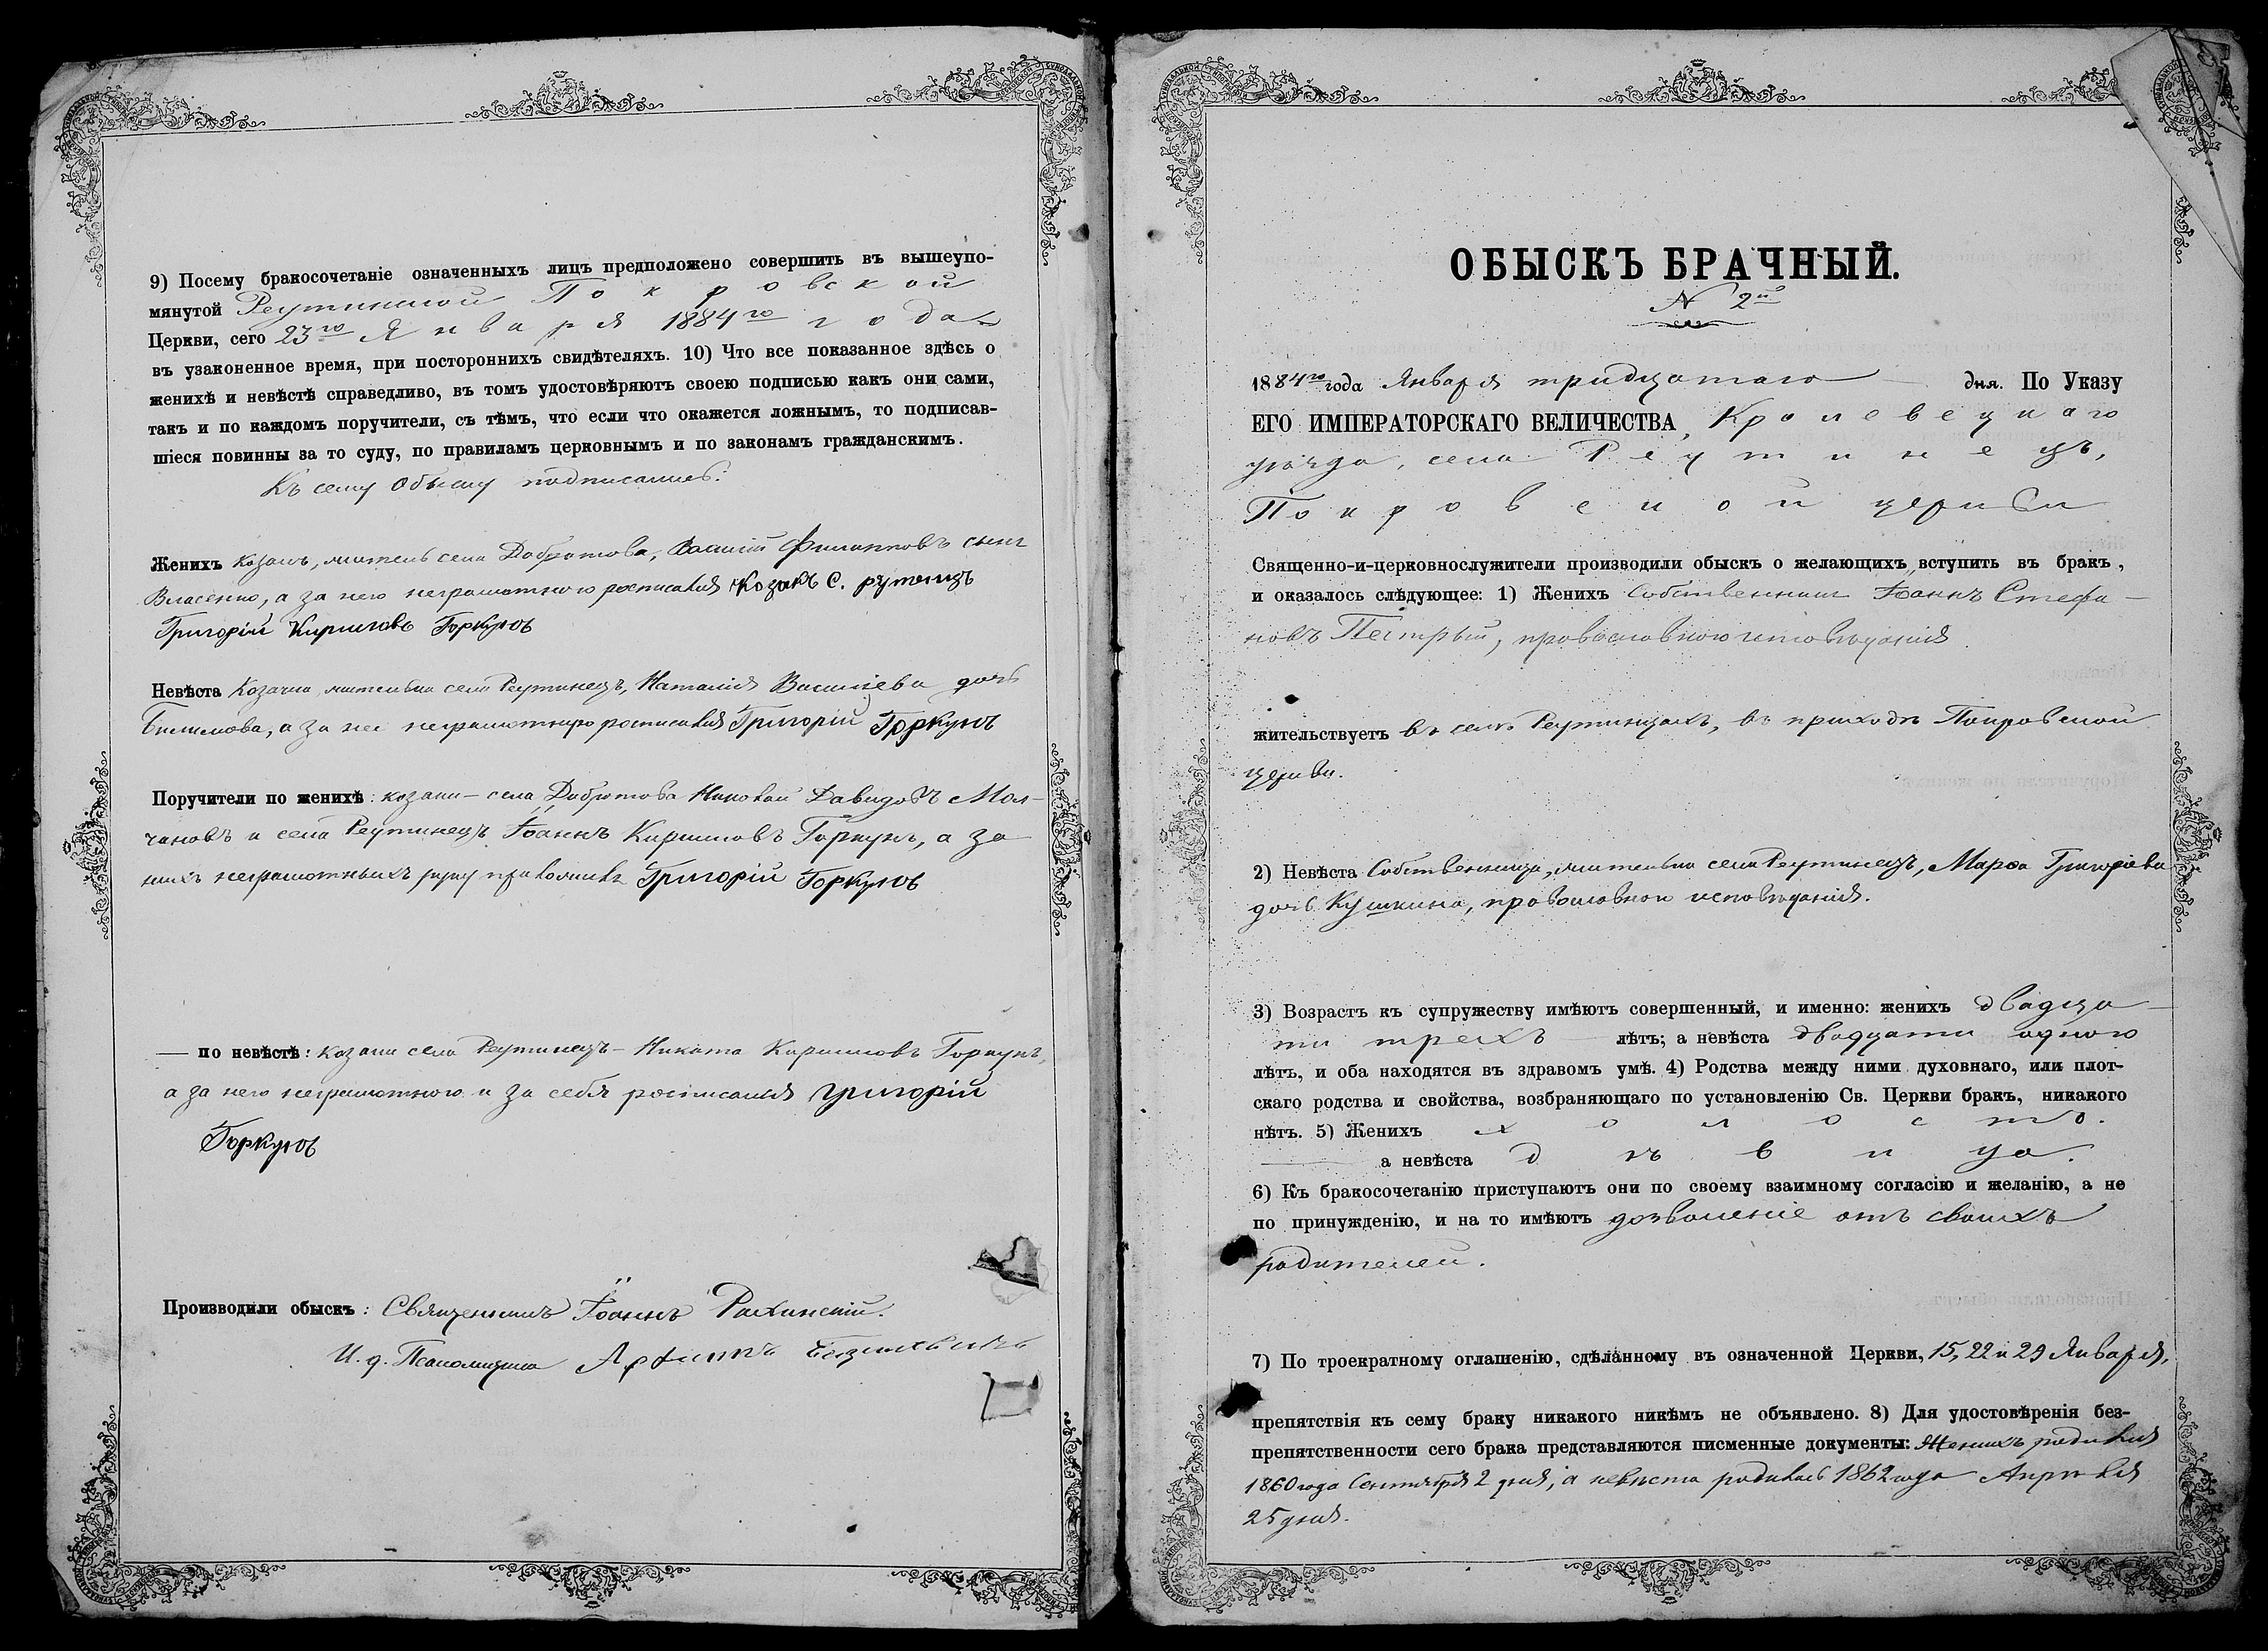 9) Посему бракосочетаніе означенныхъ лицъ предположено совершить въ вышеупо-
мянутой Реутинской Покровской
Церкви, сего 23го Января 1884го года
въ узаконенное время, при постороннихъ свидѣтеляхъ. 10) Что все показанное здѣсь о
женихѣ и невѣстѣ справедливо, въ томъ удостовѣряютъ своею подписью какъ они сами,
такъ и по каждомъ поручители, съ тѣмъ, что если что окажется ложнымъ, то подписав-
шіеся повинны за то суду, по правиламъ церковнымъ и по законамъ гражданскимъ.
Къ сему обыску подписались:
Женихъ козакъ, житель села Добротова, Василій Филипповъ сынъ
Власенко, а за него неграмотного росписался Козакъ С. рутенцъ
Григорій Кириловъ Горкунъ
Невѣста Козачка, жителька села Реутинецъ, Наталія Василіева дочь
а за нее неграмотную росписался Григорій Горкунъ
Поручители по женихѣ: козаки – села Добротова Николай Давидовъ Мол-
чановъ и села Реутинецъ Іоаннъ Кириловъ Горкунъ, а за
нихъ неграмотныхъ руку приложилъ Григорій Горкунъ
— по невѣстѣ: козаки села Реутинецъ – Никита Кириловъ Горкунъ,
а за него неграмотного и за себя росписался Григорій
Горкунъ
Производили обыскъ: Священникъ Іоаннъ
И. д. Псаломщика
ОБЫСКЪ БРАЧНЫЙ.
N 2й
1884го года Января тридцатаго дня. По Указу
ЕГО ИМПЕРАТОРСКАГО ВЕЛИЧЕСТВА, Кролевецкаго
уѣзда, села Реутинецъ,
Покровской церкви
Священно-и-церковнослужители производили обыскъ о желающихъ вступить въ бракъ,
и оказалось слѣдующее: 1) Женихъ Собственникъ Іоаннъ Стефа-
новъ Пестрый, православного исповѣданія
жительствуетъ въ селѣ Реутинцахъ, въ приходѣ Покровской
церкви.
2) Невѣста Собственница, жителька села Реутинецъ, Марѳа Григоріева
дочь Кушкина, православного исповѣданія.
3) Возрастъ къ супружеству имѣютъ совершенный, и именно: женихъ двадца-
ти трехъ лѣтъ; а невѣста двадцати одного
лѣтъ, и оба находятся въ здравомъ умѣ. 4) Родства между ними духовнаго, или плот-
скаго родства и свойства, возбраняющаго по установленію Св. Церкви бракъ, никакого
нѣтъ. 5) Женихъ холостъ.
а невѣста дѣвица.
6) Къ бракосочетанію приступаютъ они по своему взаимному согласію и желанію, а не
по принужденію, и на то имѣютъ дозволеніе отъ своихъ
родителей.
7) По троекратному оглашенію, сдѣланному въ означенной Церкви, 15, 22 и 29 Января,
препятствія къ сему браку никакого никѣмъ не объявлено. 8) Для удостовѣренія без-
препятственности сего брака представляются писменные документы: Женихъ родился
1860 года Сентября 2 дня, а невѣста родилась 1862 года Апрѣля
25 дня.